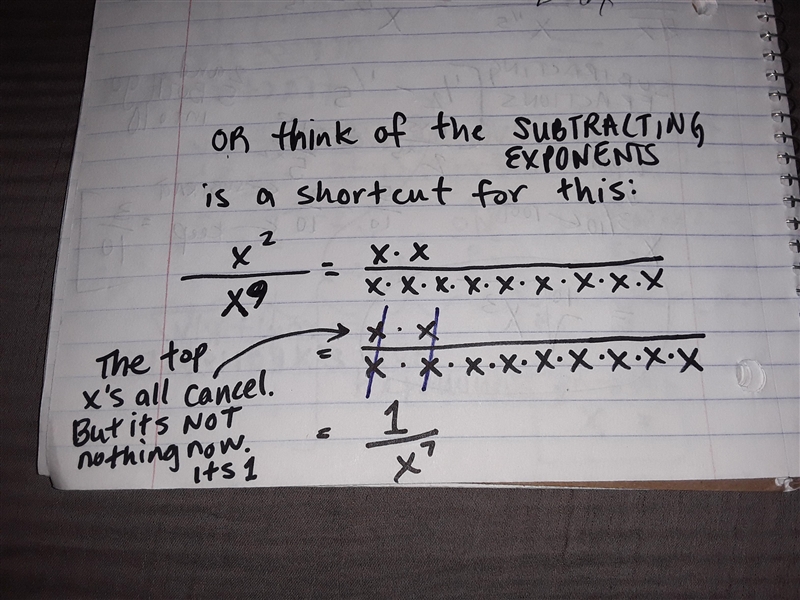 OR think of the SUBTRACTING
EXPONENTS
is a shortcut for this:
x² / x⁹ = x · x / x · x · x · x · x · x · x · x · x
= x · x / x · x · x · x · x · x · x · x · x
= 1 / x⁷
The top
x's all cancel.
But it's NOT
nothing now.
its 1